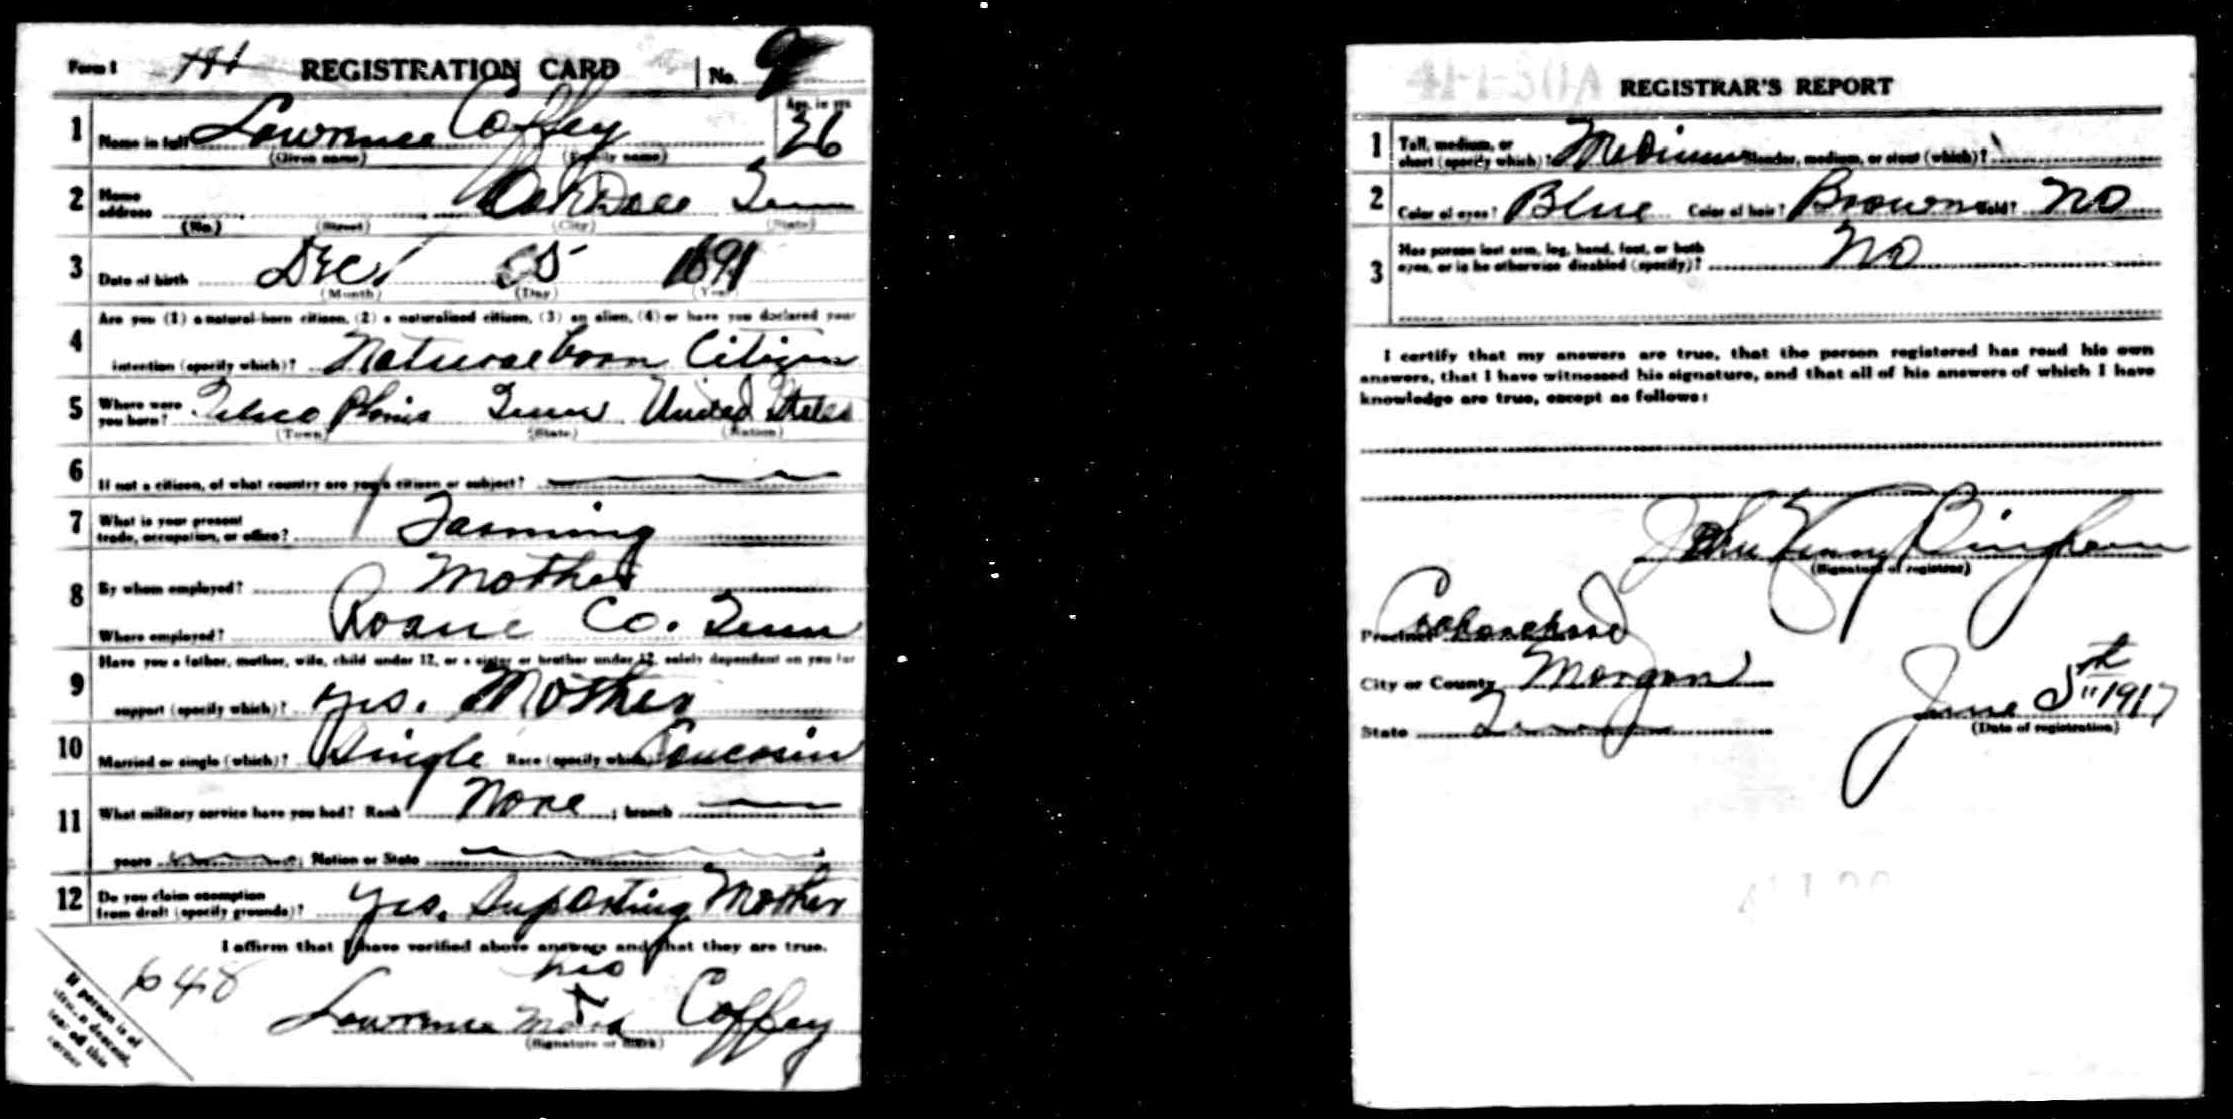 Form 1 REGISTRATION CARD No. 9
1 Name in full Lawrence Coffey Age, in yrs 26
(Given name) (Family name)
2 Home address Oakdale Tenn
(No.) (Street) (City) (State)
3 Date of birth Dec 1891
(Month) (Day) (Year)
Are you (1) a natural-born citizen, (2) a naturalized citizen, (3) an alien, (4) or have you declared your
4 intention (specify which)? Natural born Citizen
5 Where were you born? Telico Plains Tenn United States
(Town) (State) (Nation)
6 If not a citizen, of what country are you a citizen or subject?
7 What is your present trade, occupation, or office? Farming
8 By whom employed? Mother
Where employed? Roane Co. Tenn
Have you a father, mother, wife, child under 12, or a sister or brother under 12, solely dependent on you for
9 support (specify which)? yes. Mother
10 Married or single (which)? Single Race (specify which)? Caucasin
11 What military service have you had? Rank None ; branch
years ; Nation or State
12 Do you claim exemption from draft (specify grounds)? yes. Suporting Mother
I affirm that I have verified above answers and that they are true.
648
his
Lawrence X Coffey
mark
(Signature or mark)
If person is of
descent,
tear off this
corner
REGISTRAR'S REPORT
1 Tall, medium, or short (specify which)? Medium Slender, medium, or stout (which)?
2 Color of eyes? Blue Color of hair? Brown Bald? No
3 Has person lost arm, leg, hand, foot, or both eyes, or is he otherwise disabled (specify)? No
I certify that my answers are true, that the person registered has read his own
answers, that I have witnessed his signature, and that all of his answers of which I have
knowledge are true, except as follows:
John Henry Bingham
(Signature of registrar)
Precinct
City or County Morgan
State Tenn
June 5th 1917
(Date of registration)